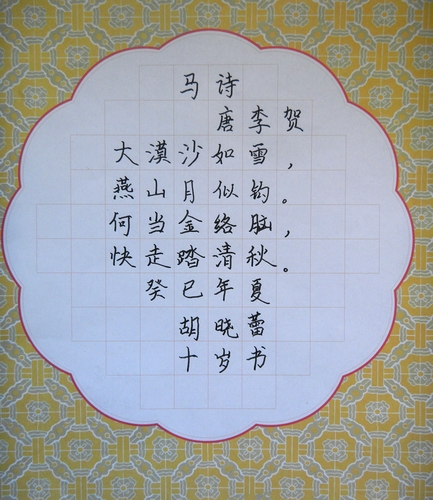 马诗
唐李贺
大漠沙如雪，
燕山月似钩。
何当金络脑，
快走踏清秋。
癸巳年夏
胡晓蕾
十岁书